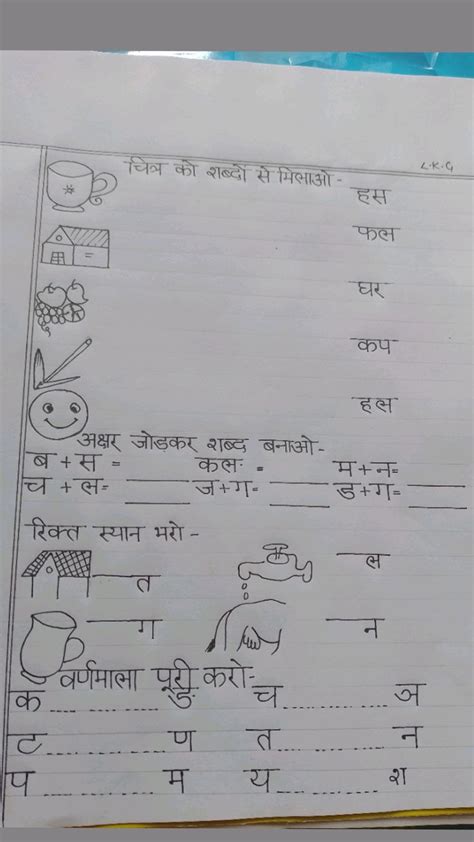 L.K.G
चित्र को शब्दो से मिलाओ -
हस
फल
घर
कप
हल
अक्षर जोडकर शब्द बनाओ -
ब + स = कलः = म + न =
च + ल = ____ ज + ग = ____ ड + ग = ____
रिक्त स्थान भरो -
___ त ___ ल
___ ग ___ न
वर्णमाला पूरी करो -
क ............ ङ च ............ ञ
ट ............ ण त ............ न
प ............ म य ............ श